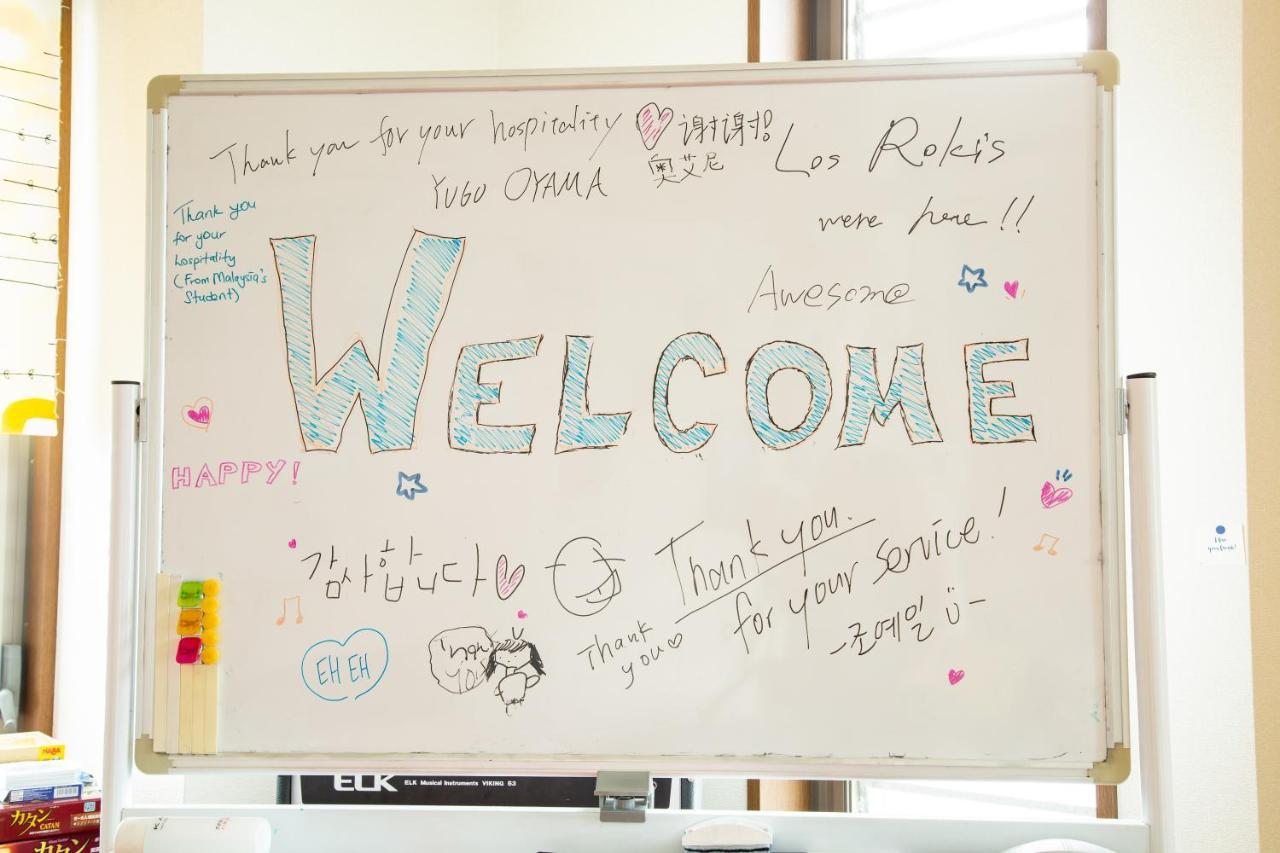 Thank you for your hospitality
谢谢!
奥艾尼
YUGO OYAMA
Los Roki's
were here!!
Thank you
for your
hospitality
(From Malaysia's
Student)
Awesome
WELCOME
HAPPY!
감사합니다
Thank you.
for your service!
-조예일
EH EH
Thank
you
ELK ELK Musical Instruments VIKING 53
HABA
カタン
CATAN
カタン